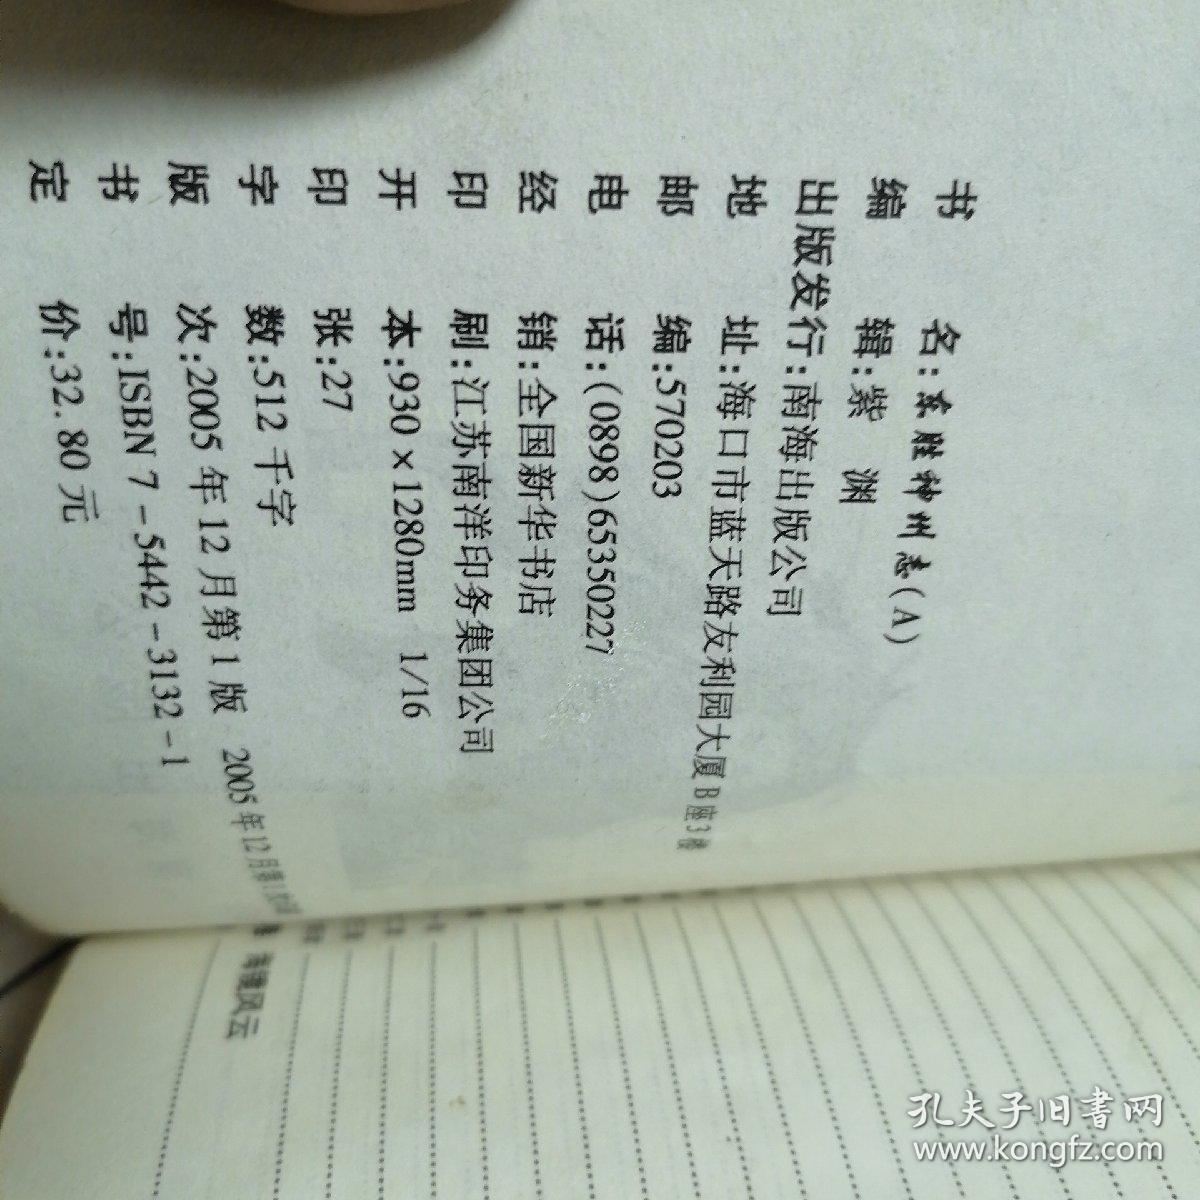 书　　名：东胜神州志（A）
编　　辑：紫　渊
出版发行：南海出版公司
地　　址：海口市蓝天路友利园大厦 B 座 3 楼
邮　　编：570203
电　　话：(0898)65350227
经　　销：全国新华书店
印　　刷：江苏南洋印务集团公司
开　　本：930×1280mm　1/16
印　　张：27
字　　数：512 千字
版　　次：2005 年 12 月第 1 版　2005 年 12 月第 1
书　　号：ISBN 7-5442-3132-1
定　　价：32.80 元
风云
孔夫子旧書网
www.kongfz.com